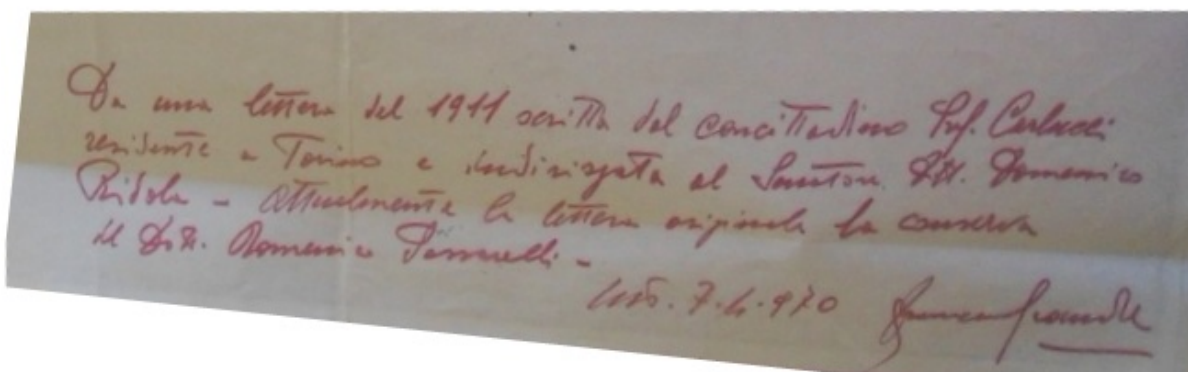 Da una lettera del 1911 scritta dal concittadino Prof. Carlucci
residente a Torino e indirizzata al Senatore Dott. Domenico
Ridola - Attualmente la lettera originale la conserva
il Dott. Domenico
7.4.970